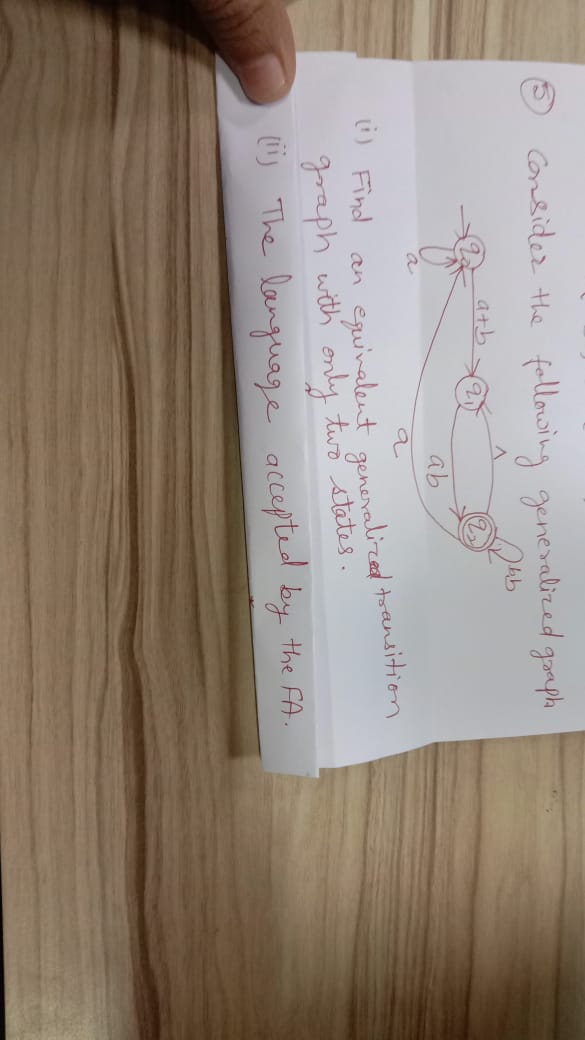 ⑤ Consider the following generalized graph
bb
λ
q0
a+b
q1
q2
ab
a
a
(i) Find an equivalent generalized transition
graph with only two states.
(ii) The language accepted by the FA.